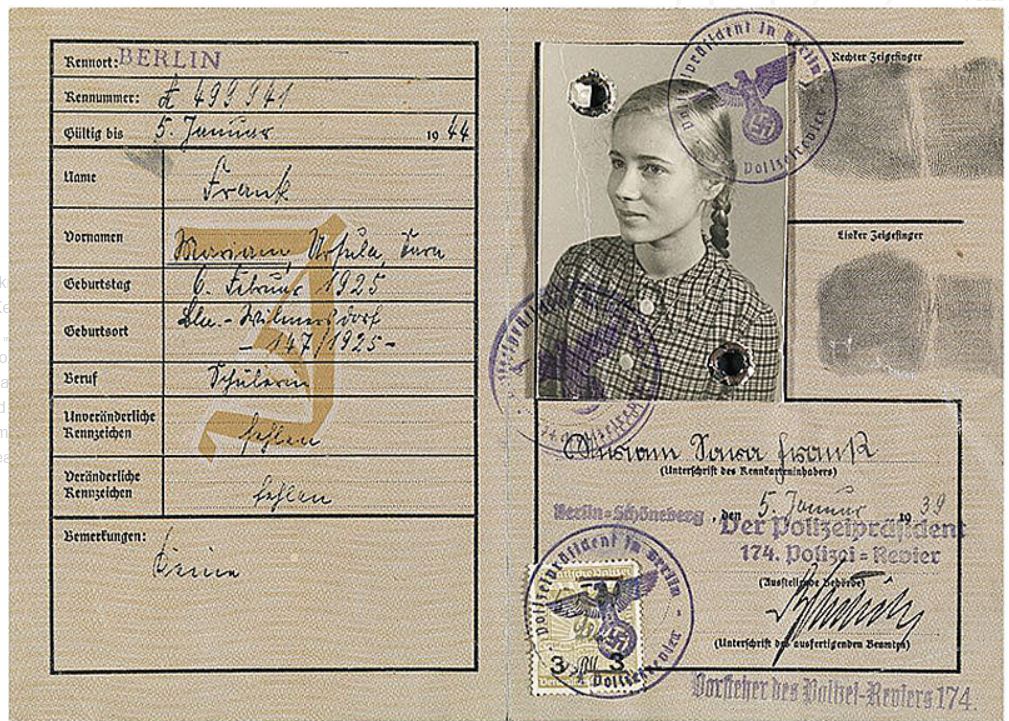 Kennort: BERLIN
Kennummer: A 499941
Gültig bis 5. Januar 1944
Name Frank
Vornamen Mariam, Ursula, Sara
Geburtstag 6. Februar 1925
Geburtsort Bln.-Wilmersdorf
- 147/1925 -
Beruf Schülerin
Unveränderliche
Kennzeichen fehlen
Veränderliche
Kennzeichen fehlen
Bemerkungen:
Keine
J
Der Polizeipräsident in Berlin
Polizeirevier
Rechter Zeigefinger
Linker Zeigefinger
Miriam Sara Frank
(Unterschrift des Kennkarteninhabers)
Berlin=Schöneberg, den 5. Januar 1939
Der Polizeipräsident
174. Polizei=Revier
(Ausstellende Behörde)
(Unterschrift des ausfertigenden Beamten)
Polizeipräsident in Berlin
Polizeirevier
3 3
Vorsteher des Polizei-Reviers 174.